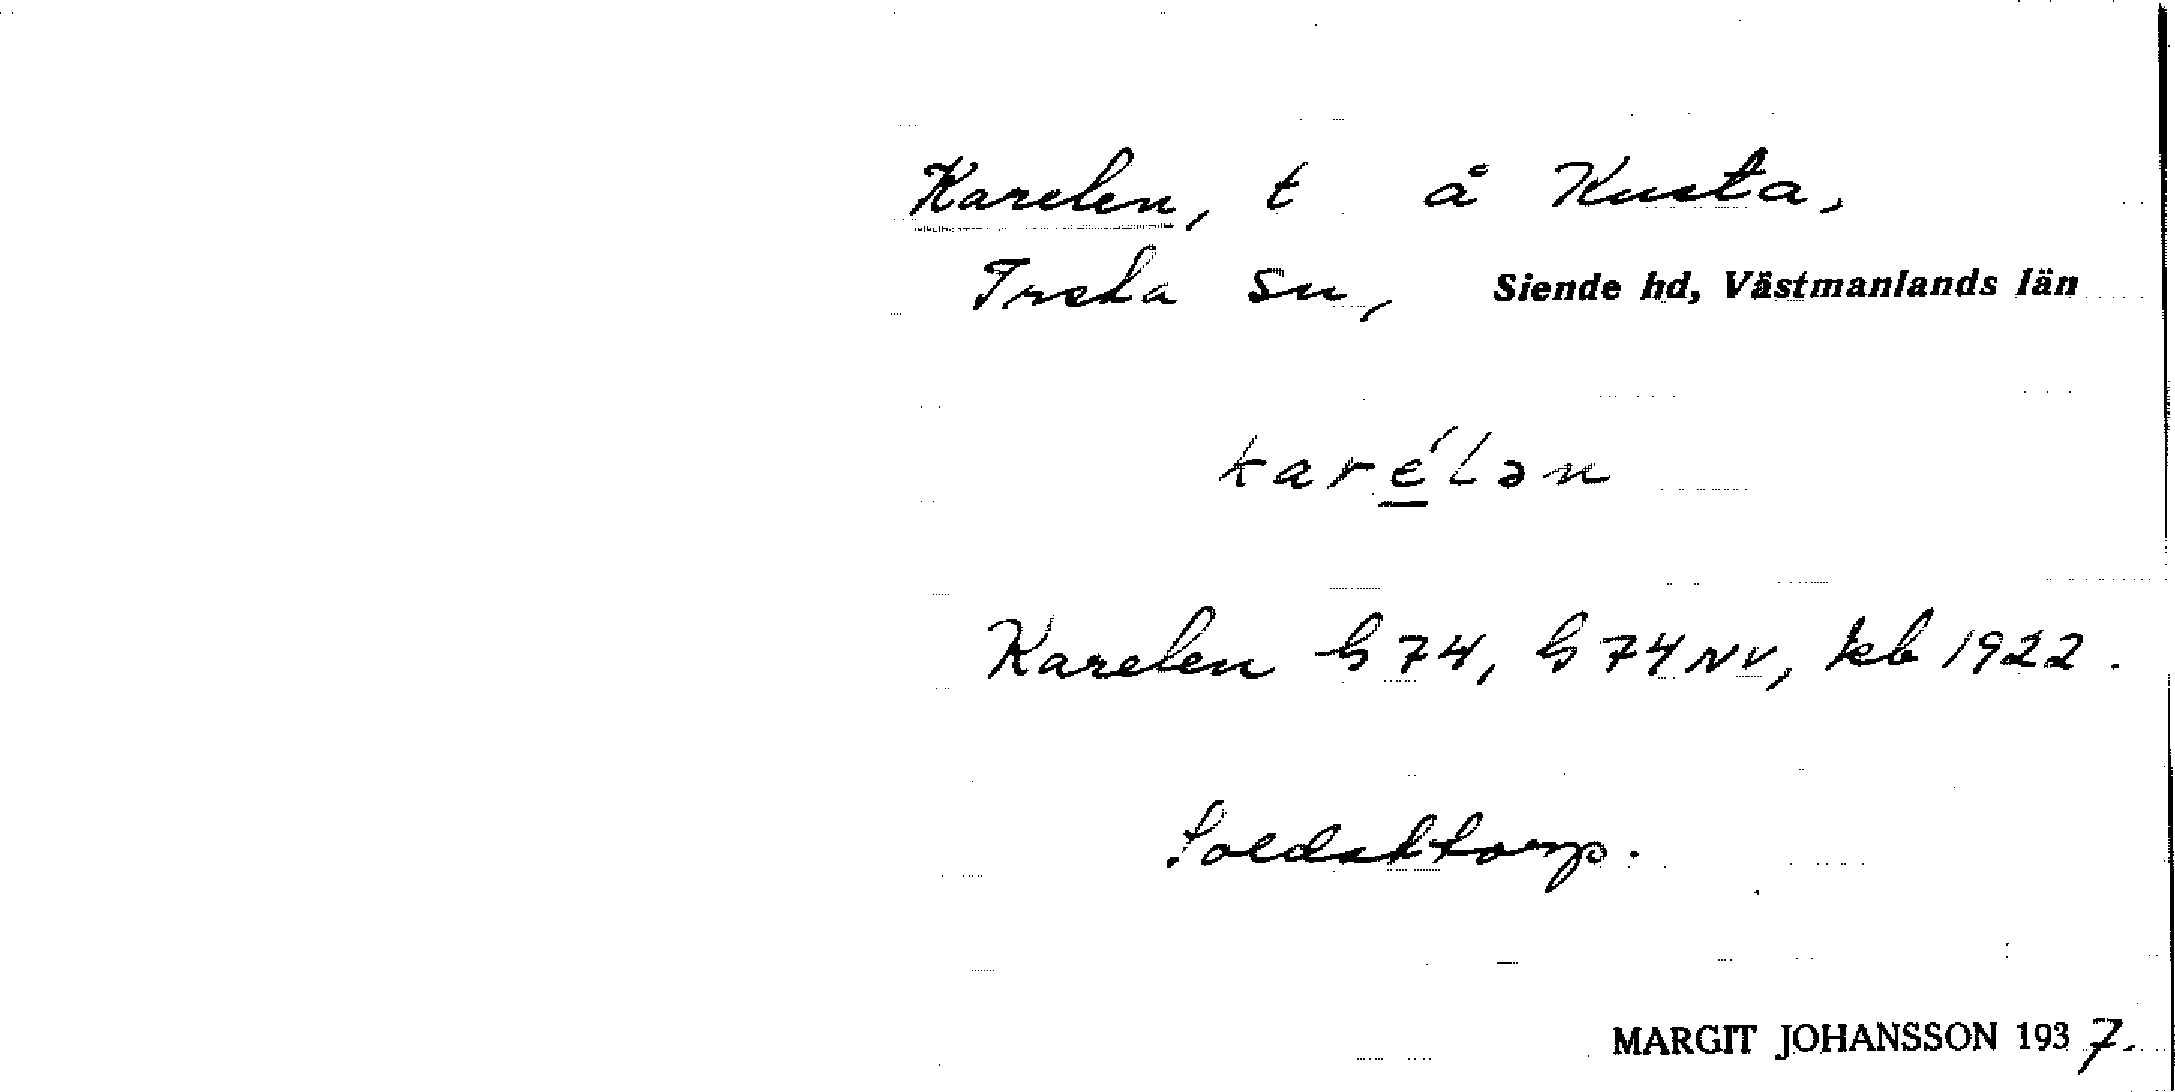 Karelen, t å Kusta,
Irsta sn, Siende hd, Västmanlands län
karélən
Karelen G 74, G 74 NV, kb 1922.
Soldattorp.
MARGIT JOHANSSON 1937.